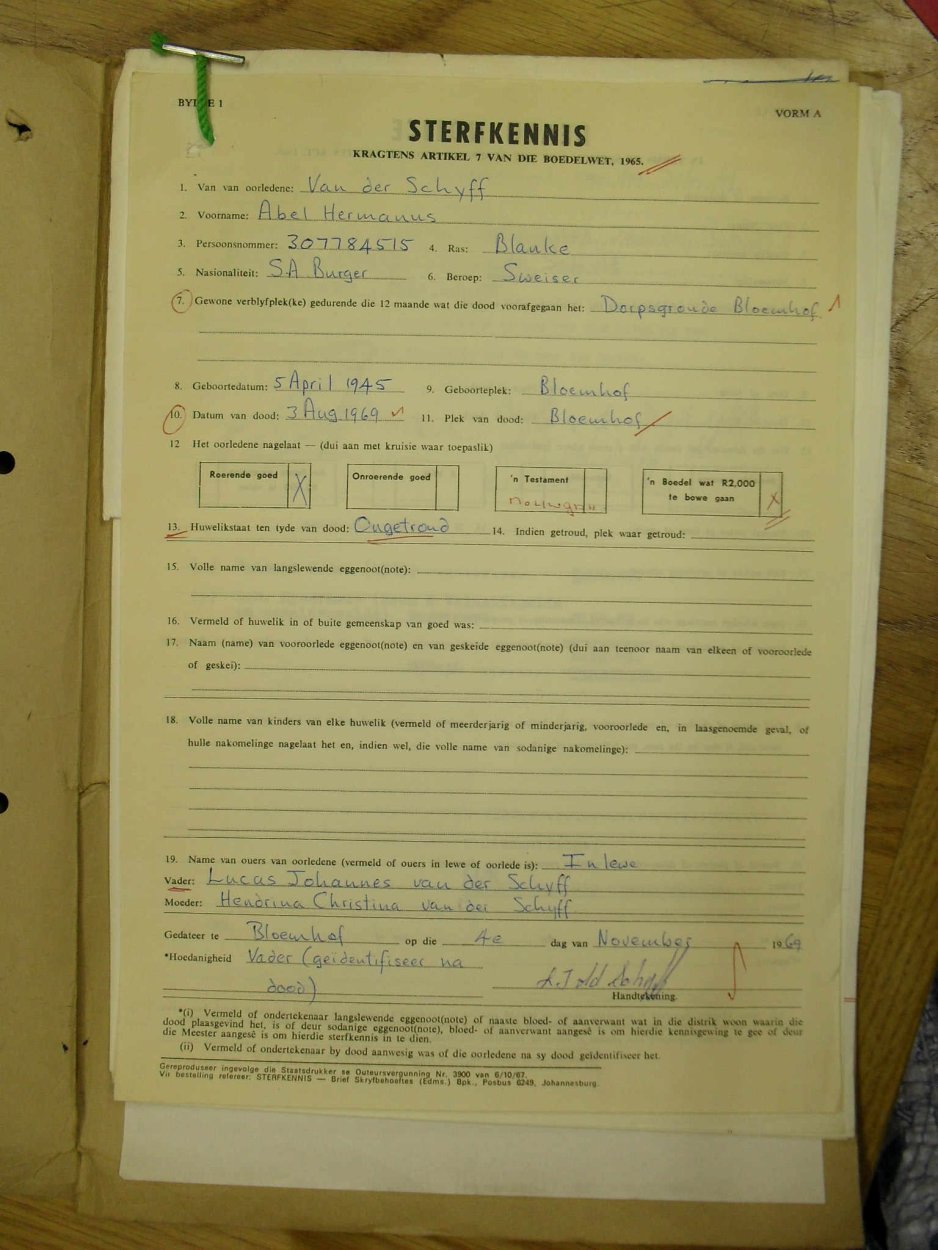 BYL E 1
VORM A
STERFKENNIS
KRAGTENS ARTIKEL 7 VAN DIE BOEDELWET, 1965.
1. Van van oorledene: Van der Schyff
2. Voorname: Abel Hermanus
3. Persoonsnommer: 307784515 4. Ras: Blanke
5. Nasionaliteit: S.A Burger 6. Beroep: Sweiser
7. Gewone verblyfplek(ke) gedurende die 12 maande wat die dood voorafgegaan het: Dorpsgronde Bloemhof
8. Geboortedatum: 5 April 1945 9. Geboorteplek: Bloemhof
10. Datum van dood: 3 Aug 1969 11. Plek van dood: Bloemhof
12 Het oorledene nagelaat — (dui aan met kruisie waar toepaslik)
Roerende goed X Onroerende goed 'n Testament 'n Boedel wat R2,000
te bowe gaan X
13. Huwelikstaat ten tyde van dood: Ongetroud 14. Indien getroud, plek waar getroud:
15. Volle name van langslewende eggenoot(note):
16. Vermeld of huwelik in of buite gemeenskap van goed was:
17. Naam (name) van vooroorlede eggenoot(note) en van geskeide eggenoot(note) (dui aan teenoor naam van elkeen of vooroorlede
of geskei):
18. Volle name van kinders van elke huwelik (vermeld of meerderjarig of minderjarig, vooroorlede en, in laasgenoemde geval, of
hulle nakomelinge nagelaat het en, indien wel, die volle name van sodanige nakomelinge):
19. Name van ouers van oorledene (vermeld of ouers in lewe of oorlede is): In lewe
Vader: Lucas Johannes van der Schyff
Moeder: Hendrina Christina van der Schyff
Gedateer te Bloemhof op die 4e dag van November 1969
*Hoedanigheid Vader (geidentifiseer na
dood)
Handtekening.
*(i) Vermeld of ondertekenaar langslewende eggenoot(note) of naaste bloed- of aanverwant wat in die distrik woon waarin die
dood plaasgevind het, is of deur sodanige eggenoot(note), bloed- of aanverwant aangesê is om hierdie kennisgewing te gee of deur
die Meester aangesê is om hierdie sterfkennis in te dien.
(ii) Vermeld of ondertekenaar by dood aanwesig was of die oorledene na sy dood geïdentifiseer het.
Gereproduseer ingevolge die Staatsdrukker se Outeursvergunning Nr. 3900 van 6/10/67.
Vir bestelling refereer: STERFKENNIS — Brief Skryfbehoeftes (Edms.) Bpk., Posbus 6249, Johannesburg.